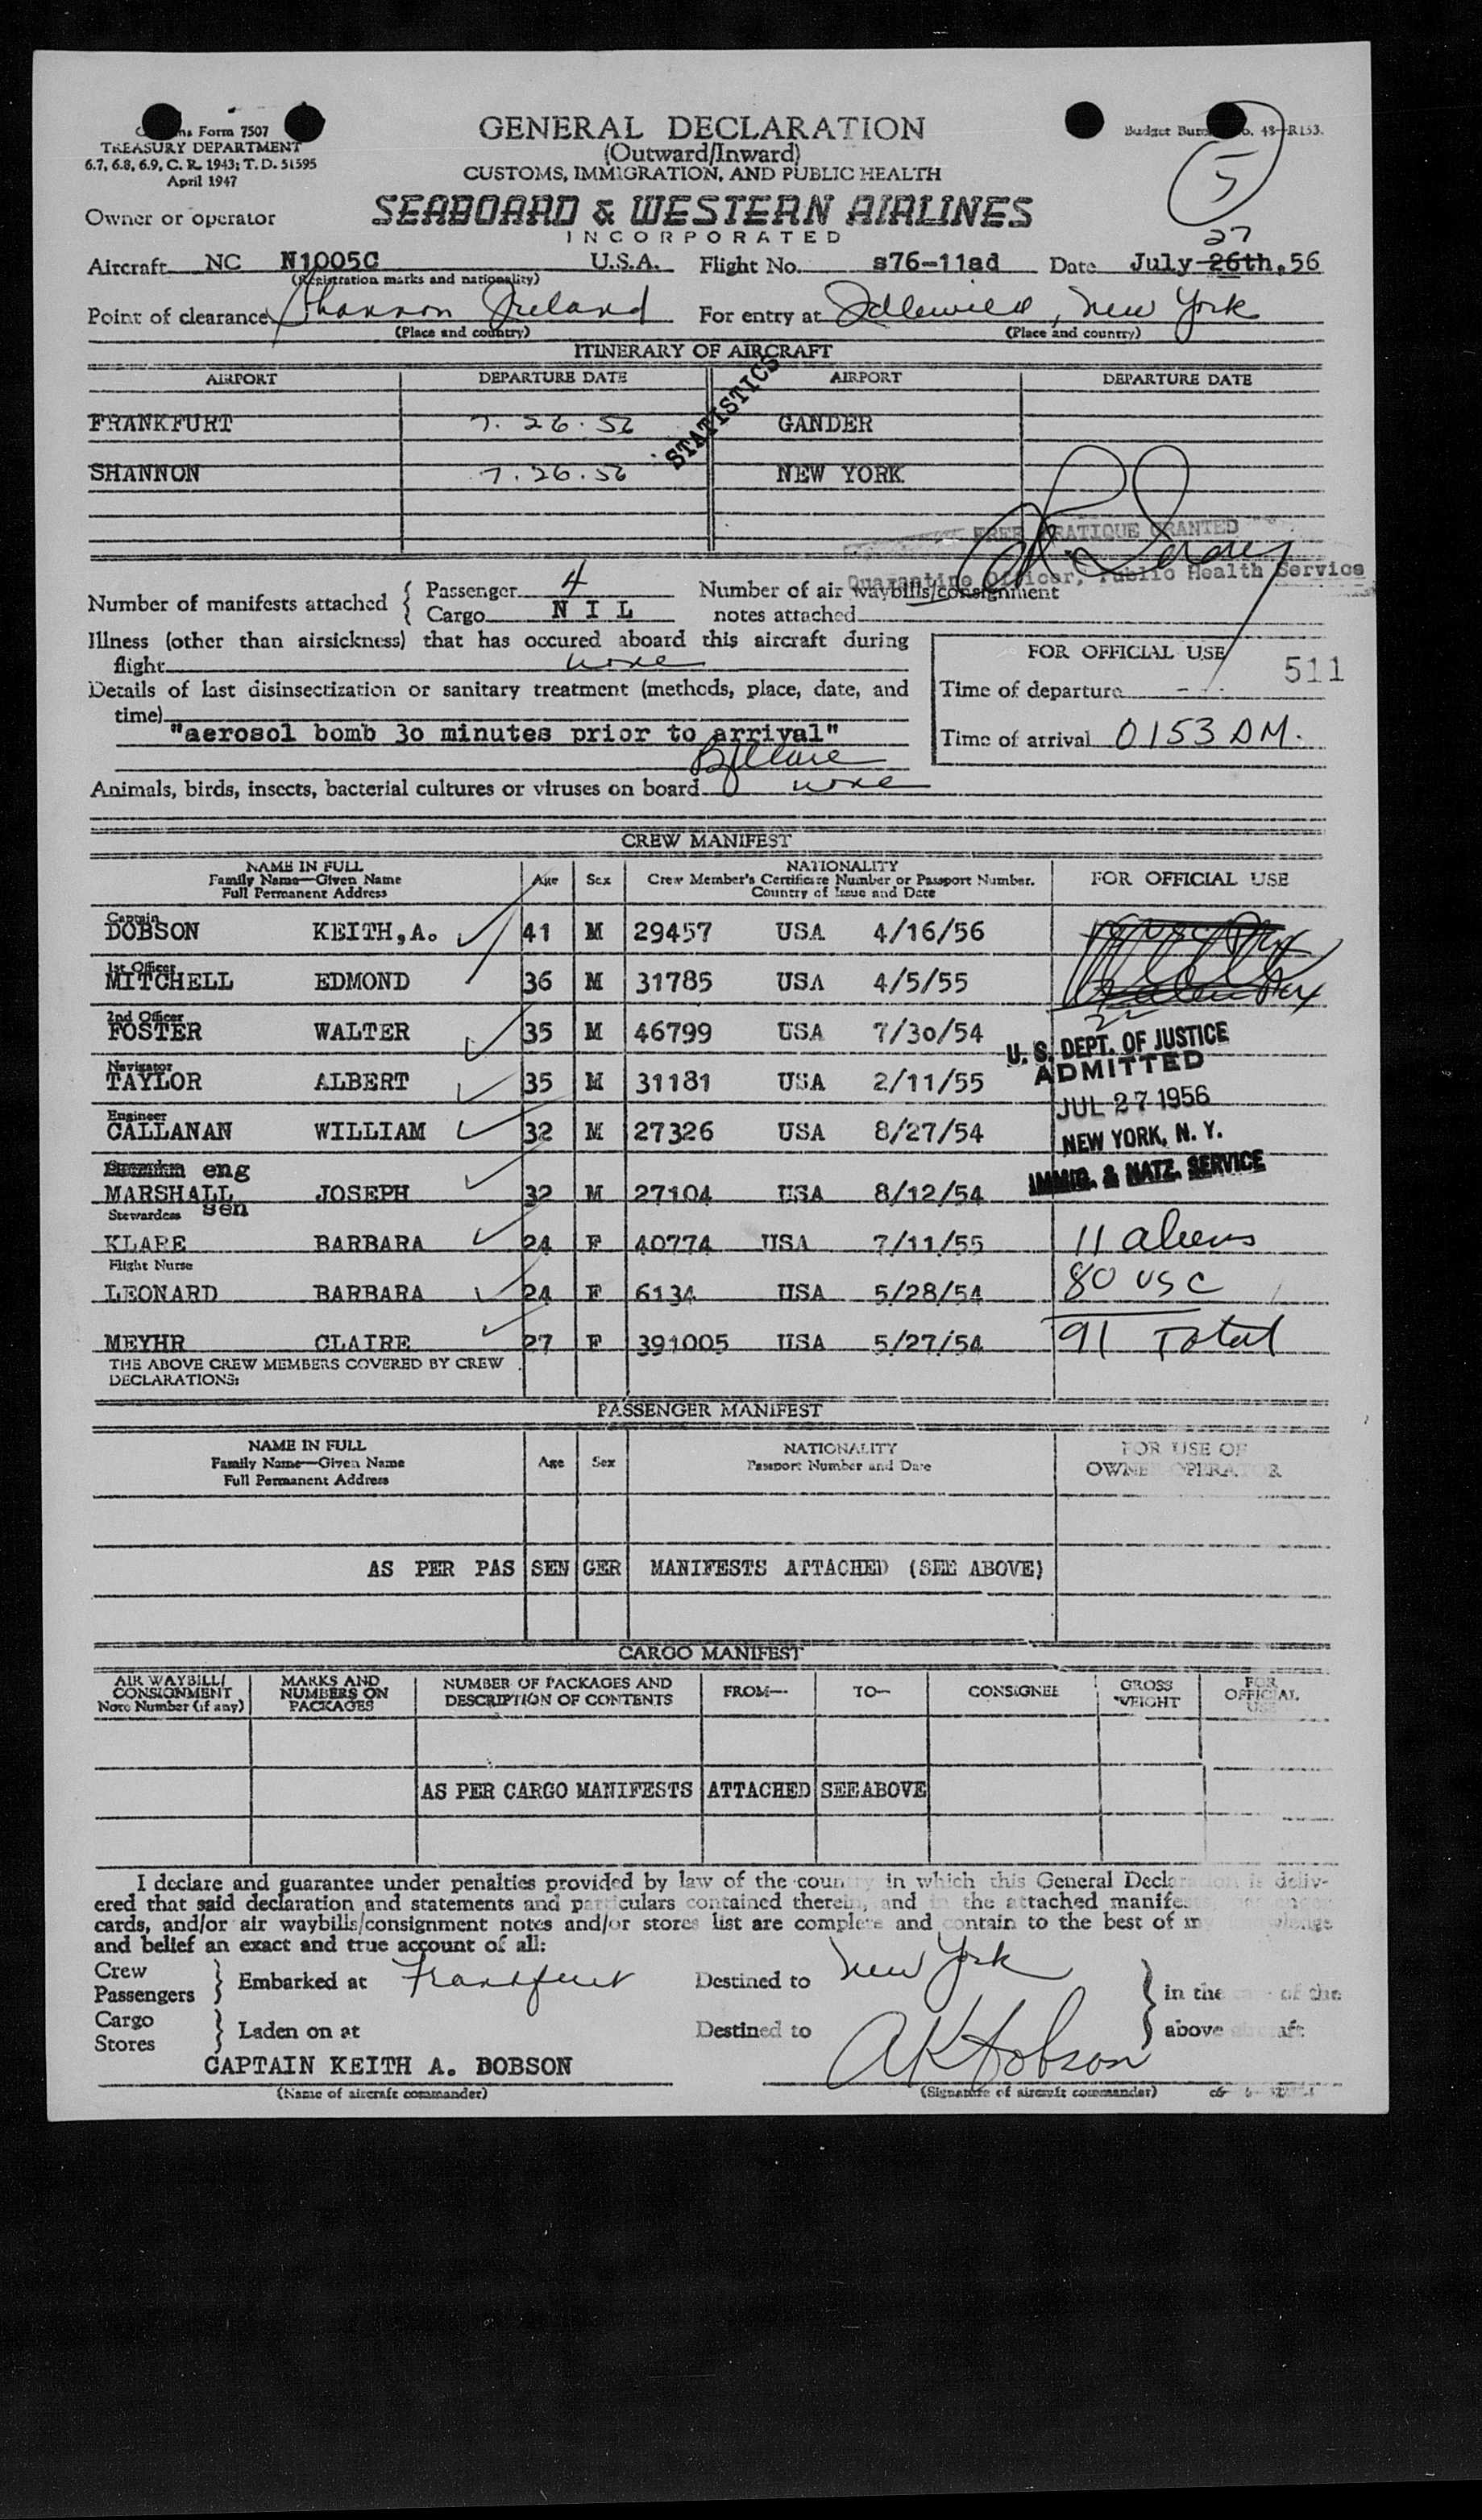 Form 7507
TREASURY DEPARTMENT
6.7, 6.8, 6.9, C. R. 1943; T. D. 51595
April 1947
GENERAL DECLARATION
(Outward/Inward)
CUSTOMS, IMMIGRATION, AND PUBLIC HEALTH
Budget 48-R153.
5
Owner or operator
SEABOARD & WESTERN AIRLINES
INCORPORATED
27
Aircraft NC N1005C U.S.A. Flight No. s76-11ad Date July 26th, 56
(Registration marks and nationality)
Point of clearance Shannon Ireland For entry at Idlewild, New York
(Place and country) (Place and country)
ITINERARY OF AIRCRAFT
AIRPORT DEPARTURE DATE AIRPORT DEPARTURE DATE
STATISTICS
FRANKFURT 7.26.56 GANDER
SHANNON 7.26.56 NEW YORK
FREE PRATIQUE GRANTED
Quarantine Officer, Public Health Service
Number of manifests attached { Passenger 4 Number of air waybills/consignment
Cargo N I L notes attached
Illness (other than airsickness) that has occured aboard this aircraft during
flight none
FOR OFFICIAL USE
511
Details of last disinsectization or sanitary treatment (methods, place, date, and
time)
Time of departure
"aerosol bomb 30 minutes prior to arrival"
Time of arrival 0153 AM.
Animals, birds, insects, bacterial cultures or viruses on board none
CREW MANIFEST
NAME IN FULL
Family Name—Given Name
Full Permanent Address
Age
Sex
NATIONALITY
Crew Member's Certificate Number or Passport Number.
Country of Issue and Date
FOR OFFICIAL USE
Captain
DOBSON KEITH,A. 41 M 29457 USA 4/16/56
1st Officer
MITCHELL EDMOND 36 M 31785 USA 4/5/55
2nd Officer
FOSTER WALTER 35 M 46799 USA 7/30/54
Navigator
TAYLOR ALBERT 35 M 31181 USA 2/11/55
Engineer
CALLANAN WILLIAM 32 M 27326 USA 8/27/54
U. S. DEPT. OF JUSTICE
ADMITTED
JUL 27 1956
NEW YORK, N. Y.
IMMIG. & NATZ. SERVICE
eng
MARSHALL JOSEPH 32 M 27104 USA 8/12/54
Stewardess sen
KLARE BARBARA 24 F 40774 USA 7/11/55 11 aliens
Flight Nurse
LEONARD BARBARA 24 F 6134 USA 5/28/54 80 USC
MEYHR CLAIRE 27 F 391005 USA 5/27/54 91 Total
THE ABOVE CREW MEMBERS COVERED BY CREW
DECLARATIONS:
PASSENGER MANIFEST
NAME IN FULL
Family Name—Given Name
Full Permanent Address
Age
Sex
NATIONALITY
Passport Number and Date
FOR USE OF
OWNER OPERATOR
AS PER PAS SEN GER MANIFESTS ATTACHED (SEE ABOVE)
CARGO MANIFEST
AIR WAYBILL/
CONSIGNMENT
Note Number (if any)
MARKS AND
NUMBERS ON
PACKAGES
NUMBER OF PACKAGES AND
DESCRIPTION OF CONTENTS
FROM—
TO—
CONSIGNEE
GROSS
WEIGHT
FOR
OFFICIAL
USE
AS PER CARGO MANIFESTS ATTACHED SEE ABOVE
I declare and guarantee under penalties provided by law of the country in which this General Declaration is deliv-
ered that said declaration and statements and particulars contained therein, and in the attached manifests,
cards, and/or air waybills/consignment notes and/or stores list are complete and contain to the best of my
and belief an exact and true account of all:
Crew
Passengers } Embarked at Frankfurt Destined to New York } in the of the
Cargo
Stores } Laden on at Destined to above
CAPTAIN KEITH A. DOBSON AK Dobson
(Name of aircraft commander) (Signature of aircraft commander)